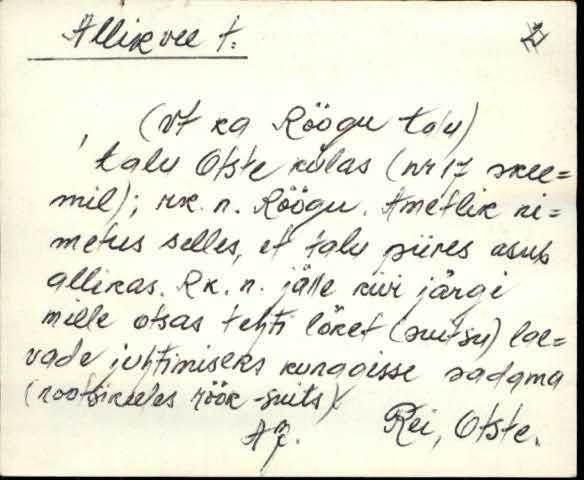 Allikvee t.
(vt ka Röögu talu)
talu Otste külas (nr 17 skee=
mil); rk. n. Röögu. Ametlik ni=
metus selles, et talu piires asub
allikas. Rk. n. jälle kivi järgi
mille otsas tehti lõket (suitsu) lae=
vade juhtimiseks kunagisse sadama
(rootsikeeles röök-suits).
Rei, Otste.